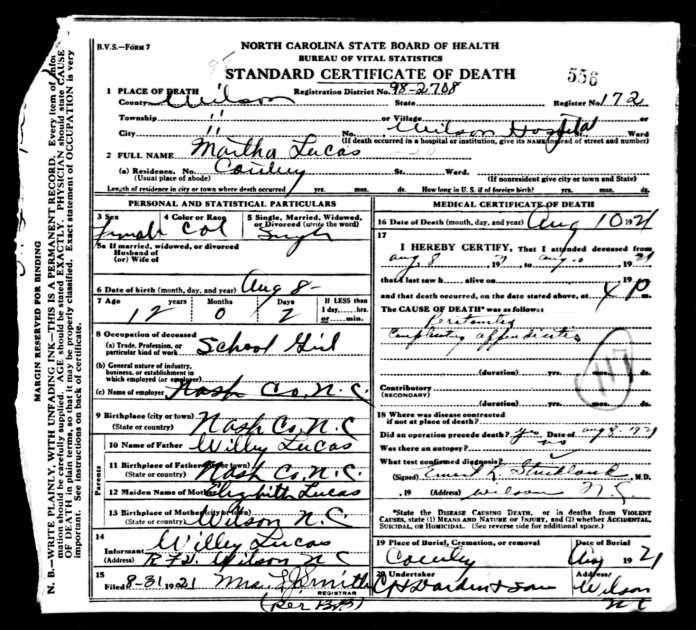 B.V.S.—FORM 7
NORTH CAROLINA STATE BOARD OF HEALTH
BUREAU OF VITAL STATISTICS
STANDARD CERTIFICATE OF DEATH
556
1 PLACE OF DEATH
Registration District No. 98-2708
County Wilson State Register No. 172
Township " or Village or
City No. Wilson Hospital Ward
(If death occurred in a hospital or institution, give its NAME instead of street and number)
2 FULL NAME Martha Lucas
(a) Residence. No. Country St. Ward.
(Usual place of abode) (If nonresident give city or town and State)
Length of residence in city or town where death occurred yrs. mos. ds. How long in U. S. if of foreign birth? yrs. mos. ds.
PERSONAL AND STATISTICAL PARTICULARS
3 Sex 4 Color or Race 5 Single, Married, Widowed, or Divorced (write the word)
Female Col Single
5a If married, widowed, or divorced
Husband of
(or) Wife of
6 Date of birth (month, day, and year) Aug 8-
7 Age years Months Days If LESS than
1 day, hrs.
or min.
12 0 2
8 Occupation of deceased
(a) Trade, Profession, or
particular kind of work School Girl
(b) General nature of industry,
business, or establishment in
which employed (or employer)
(c) Name of employer Nash Co, N.C.
9 Birthplace (city or town)
(State or country) Nash Co, N.C
Parents
10 Name of Father Willey Lucas
11 Birthplace of Father (city or town)
(State or country) Nash Co, N.C.
12 Maiden Name of Mother Lucas
13 Birthplace of Mother (city or town)
(State or country) Wilson N.C
14
Informant Willey Lucas
(Address) R.F.D. Wilson N C
15
Filed 8-31, 1921 Mrs. Smith
REGISTRAR
(Per B.B)
MEDICAL CERTIFICATE OF DEATH
16 Date of Death (month, day, and year) Aug 10 1921
17
I HEREBY CERTIFY, That I attended deceased from
Aug 8, 19 , to Aug 10 1921
that I last saw h alive on 19
and that death occurred, on the date stated above, at 4 P m.
The CAUSE OF DEATH* was as follows:
Peritonitis
Complicating appendicitis
(duration) yrs. mos. ds.
117
Contributory
(SECONDARY)
(duration) yrs. mos. ds.
18 Where was disease contracted
if not at place of death?
Did an operation precede death? yes Date of Aug 8, 1921
Was there an autopsy? no
What test confirmed diagnosis?
(Signed) Strickland M.D.
, 19 (Address) Wilson N.C.
*State the DISEASE CAUSING DEATH, or in deaths from VIOLENT
CAUSES, state (1) MEANS AND NATURE OF INJURY, and (2) whether ACCIDENTAL,
SUICIDAL, OR HOMICIDAL. (See reverse side for additional space.)
19 Place of Burial, Cremation, or removal Date of Burial
Country Aug 1921
20 Undertaker Address
C H Darden & Son Wilson
N C
MARGIN RESERVED FOR BINDING
N. B.—WRITE PLAINLY, WITH UNFADING INK—THIS IS A PERMANENT RECORD. Every item of
mation should be carefully supplied. AGE should be stated EXACTLY. PHYSICIAN should state CAUSE
OF DEATH in plain terms, so that it may be properly classified. Exact statement of OCCUPATION is very
important. See instructions on back of certificate.